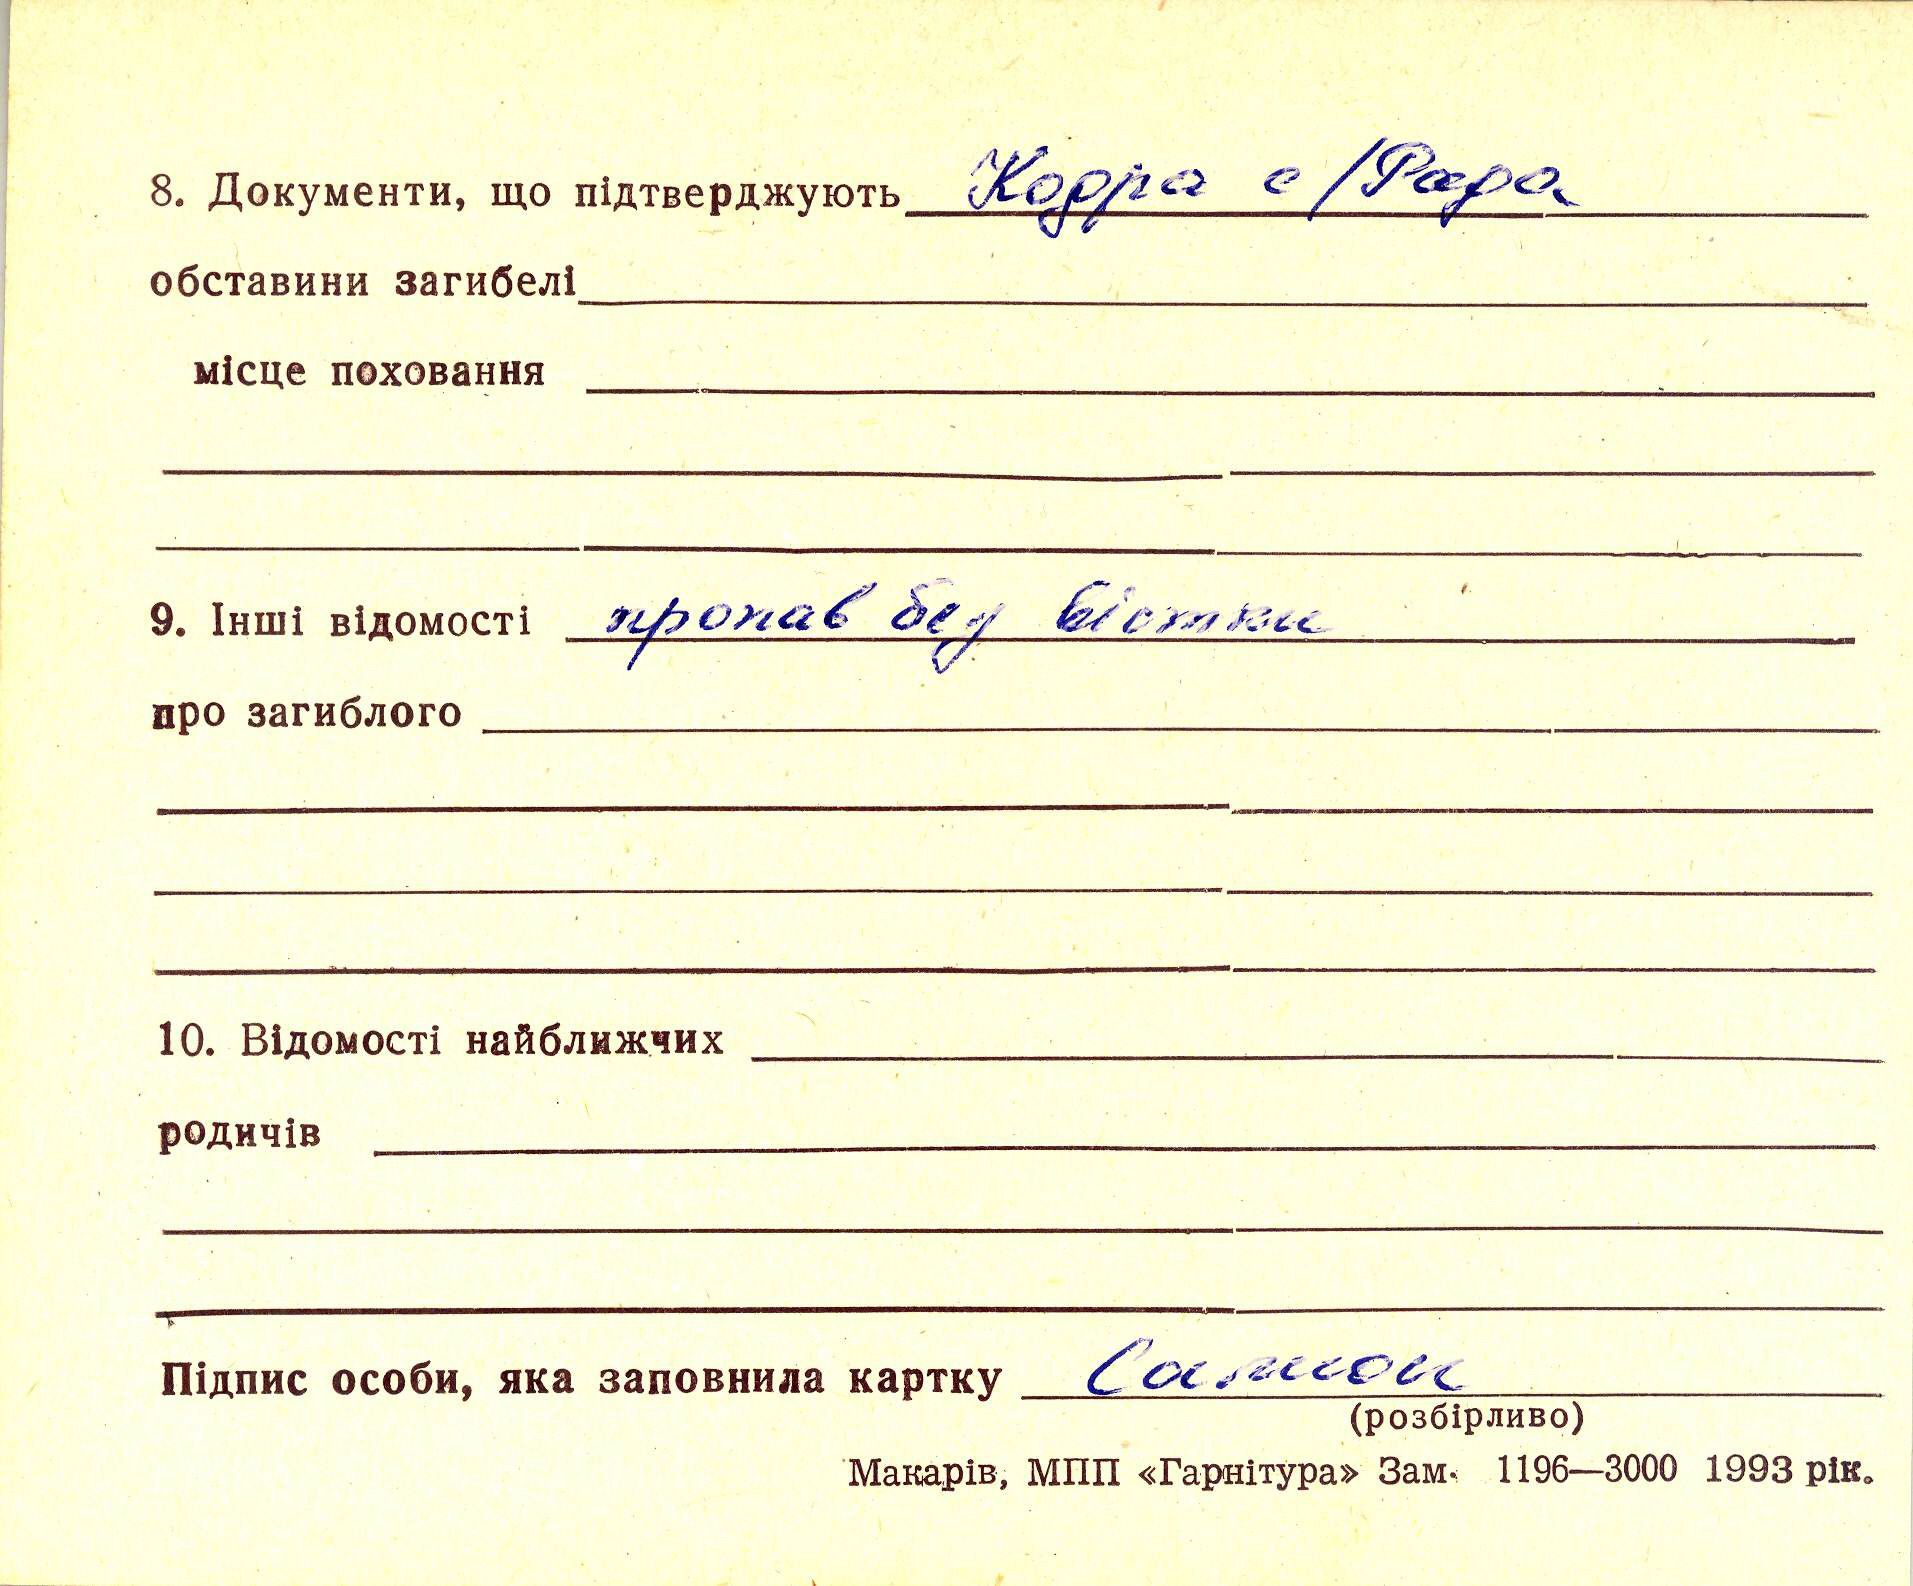 8. Документи, що підтверджують Кодра с/Рада
обставини загибелі
місце поховання
9. Інші відомості пропав без вістки
про загиблого
10. Відомості найближчих
родичів
Підпис особи, яка заповнила картку
(розбірливо)
Макарів, МПП «Гарнітура» Зам. 1196—3000 1993 рік.